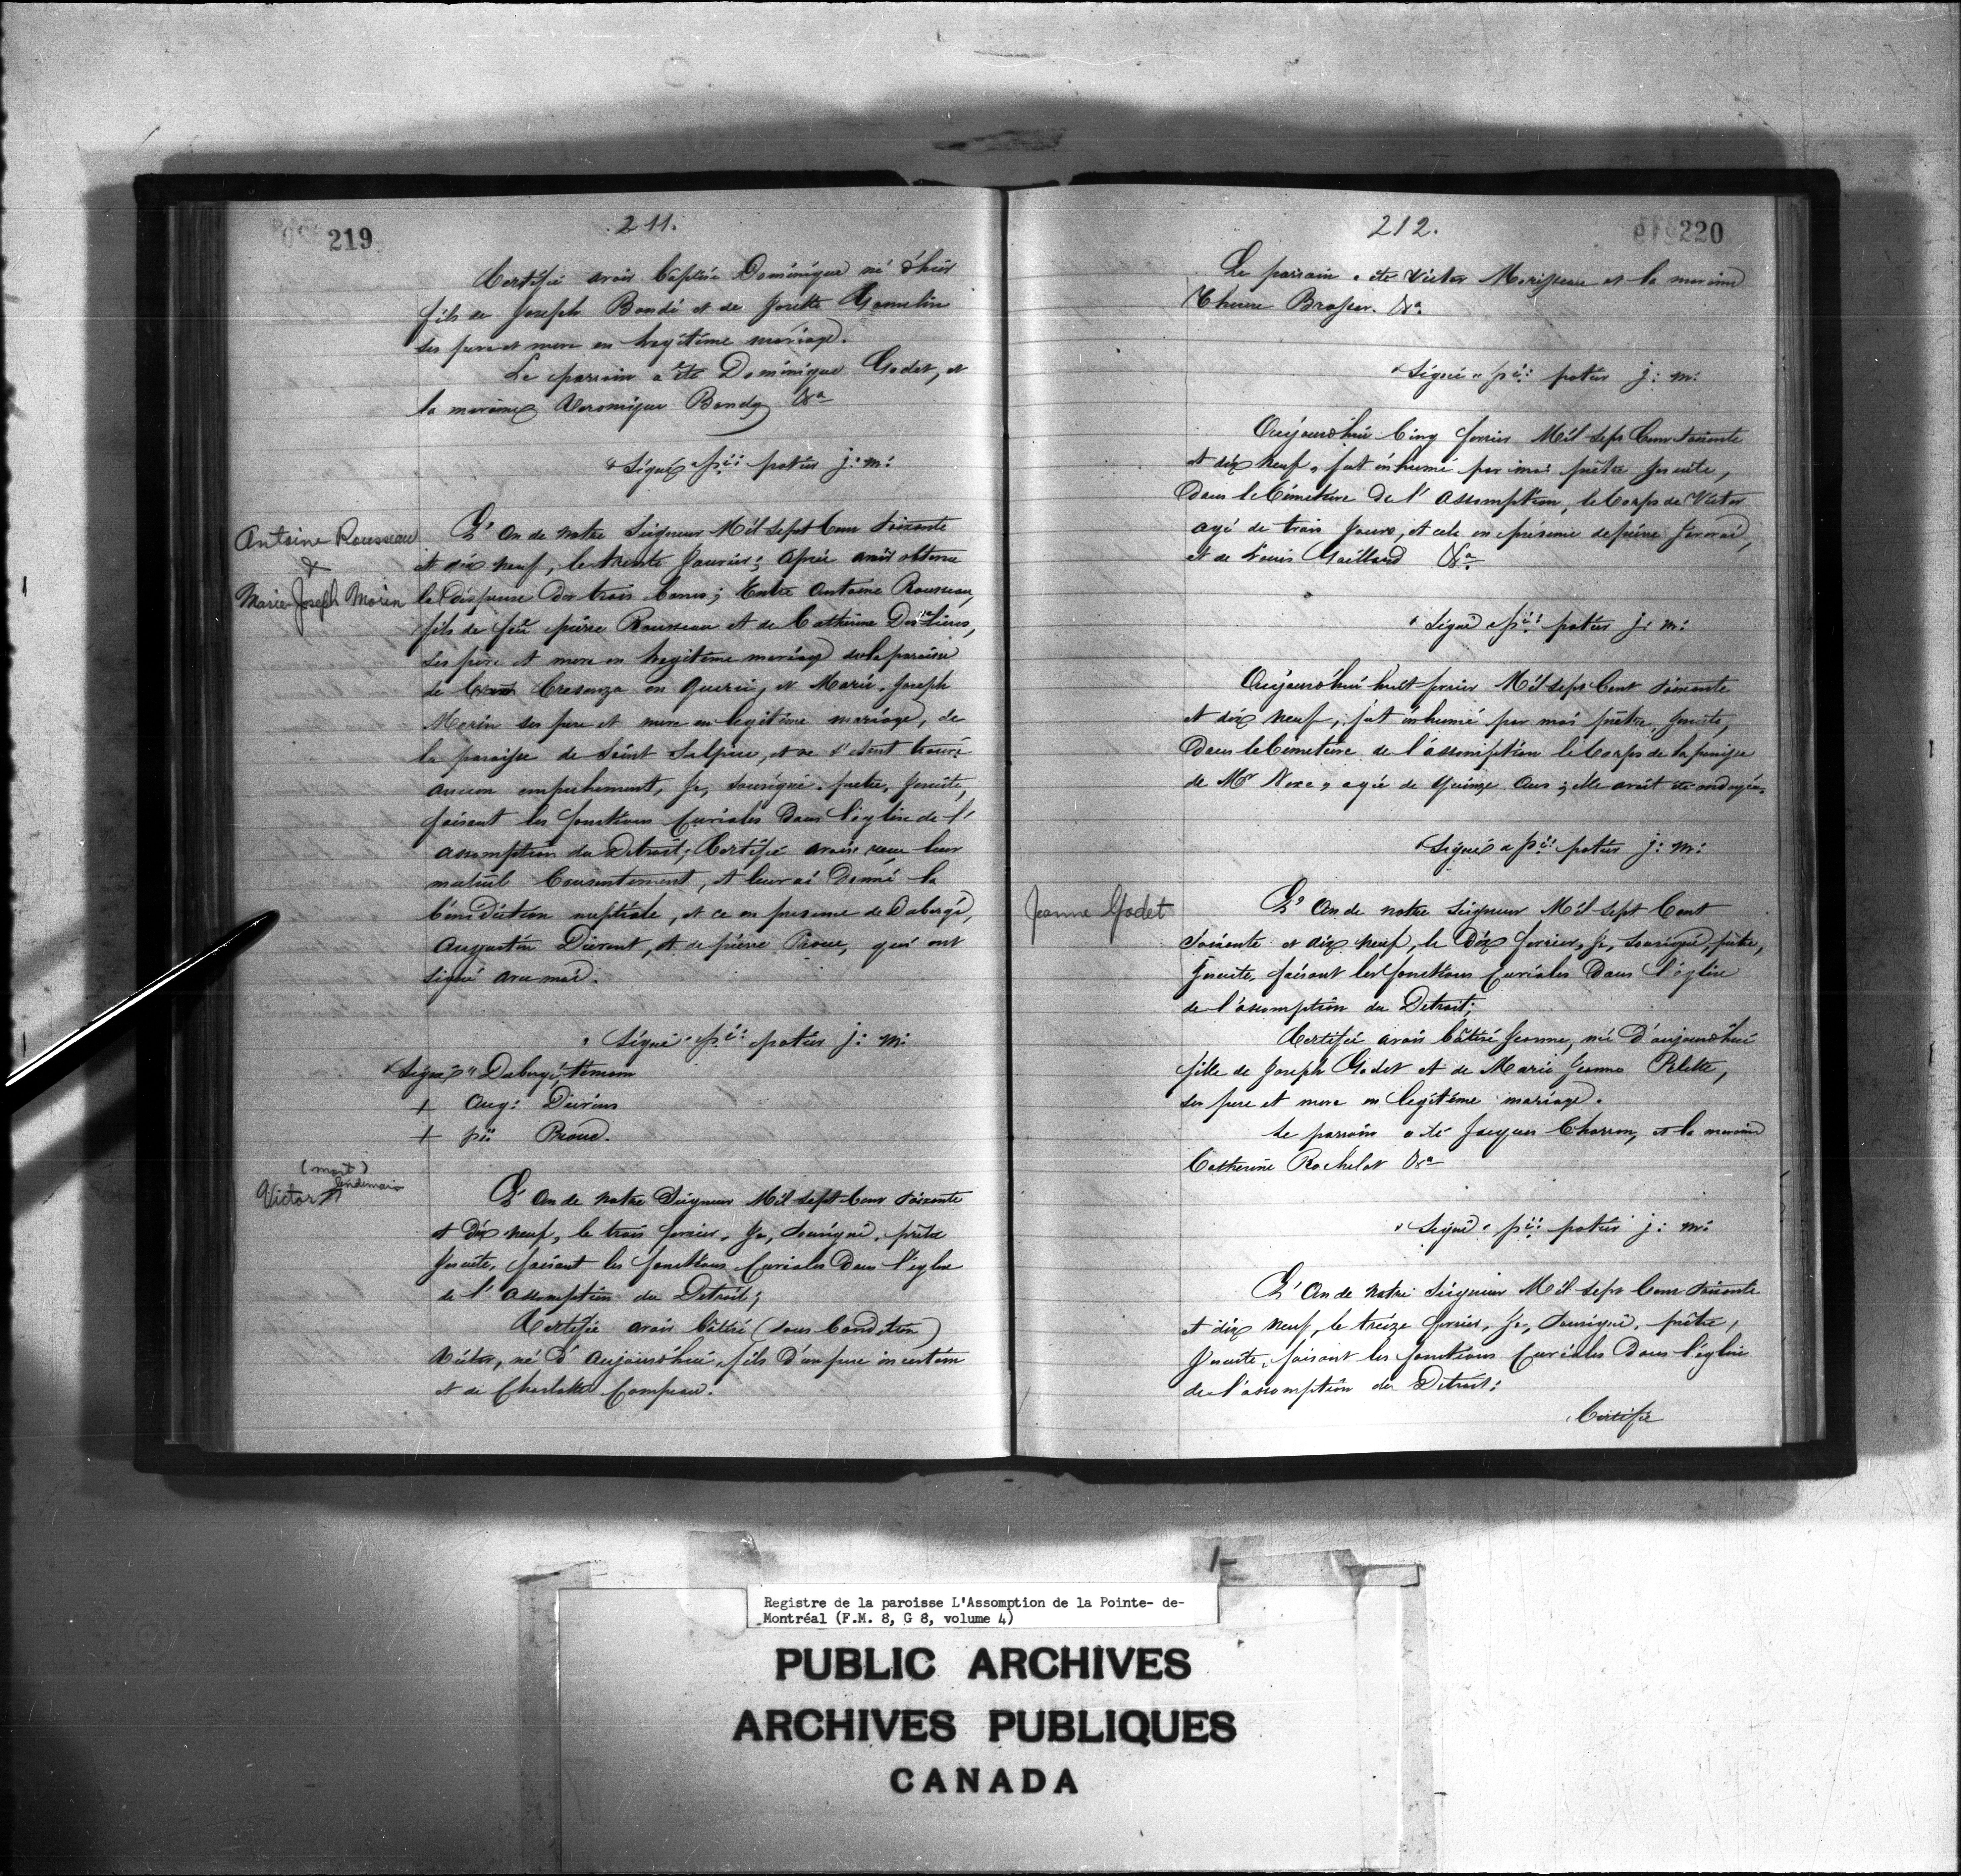 219
211.
Certifié avoir baptisé Dominique né d'hier
fils de Joseph Bondi et de Josette Gamelin
ses pere et mere en legitime mariage.
Le parrain a été Dominique Godet, et
la maraine Veronique Bondy &a
"Signé" pii: potier j: m:
Antoine Rousseau
&
Marie-Joseph Morin
L'An de notre Seigneur Mil Sept Cent Soixante
et dix neuf, le trente Janvier; après avoir obtenu
la dispense des trois bancs; Entre Antoine Rousseau,
fils de feu pierre Rousseau et de Catherine
ses pere et mere en legitime mariage de la paroisse
de Cresenza en Querci, et Marie Joseph
Morin ses pere et mere en legitime mariage, de
la paroisse de Saint Sulpice, et ne s'étant trouvé
aucun empechement, Je, sousigné, pretre, Jesuite,
faisant les fonctions Curiales Dans l'eglise de l'
assomption du Detroit; Certifié avoir recu leur
mutuel Consentement, et leur ai Donné la
bénédiction nuptiale, et ce en presence de Dabergé,
Augustin Dierent, et de pierre Proue, qui ont
signé avec moi.
"Signé" pii: potier j: m:
"Signé" Dabergé, temoin
+ Aug:
+ pii Proue.
(mort)
lendemain
Victor
L'An de notre Seigneur Mil Sept Cent Soixante
et Dix neuf, le trois fevrier, Je, Sousigné, prêtre
Jesuite, faisant les fonctions Curiales Dans l'eglise
de l'assomption du Detroit;
Certifié avoir bâtisé (sous Condition)
Victor, né d'aujourd'hui, fils d'un pere incertain
et de Charlotte Campeau.
220
212.
Le parrain a été Victor Morisseau et la maraine
&a
"Signé" pii: potier j: m:
Aujourd'hui Cinq fevrier Mil Sept Cent Soixante
et dix neuf, fut inhumé par moi prêtre Jesuite,
Dans le Cimetiere de l'Assomption, le Corps de Victor
agé de trois Jours, et cela en présence de pierre
et de Louis Gaillard &a
"Signé" pii: potier j: m:
Aujourd'hui huit fevrier Mil Sept Cent Soixante
et dix neuf, fut inhumé par moi prêtre, Jesuite,
Dans le Cimetiere de l'assomption le Corps de la
de Mr agée de Quinze Ans; elle avait été ondoyée.
"Signé" pii: potier j: m:
Jeanne Godet
L'An de notre Seigneur Mil Sept Cent
Soixante et dix neuf, le Dix fevrier, Je, Sousigné, prêtre,
Jesuite, faisant les fonctions Curiales Dans l'église
de l'assomption du Detroit;
Certifié avoir bâtisé Jeanne, née d'aujourd'hui
fille de Joseph Godet et de Marie Jeanne Pilette,
ses pere et mere en legitime mariage.
Le parrain a été Jacques Charron, et la maraine
Catherine Rochelot &a
"Signé" pii: potier j: m:
L'An de notre Seigneur Mil Sept Cent Soixante
et dix neuf, le treize fevrier, Je, Sousigné, prêtre,
Jesuite, faisant les fonctions Curiales Dans l'église
de l'assomption du Detroit:
Certifié
Registre de la paroisse L'Assomption de la Pointe- de-
Montréal (F.M. 8, G 8, volume 4)
PUBLIC ARCHIVES
ARCHIVES PUBLIQUES
CANADA